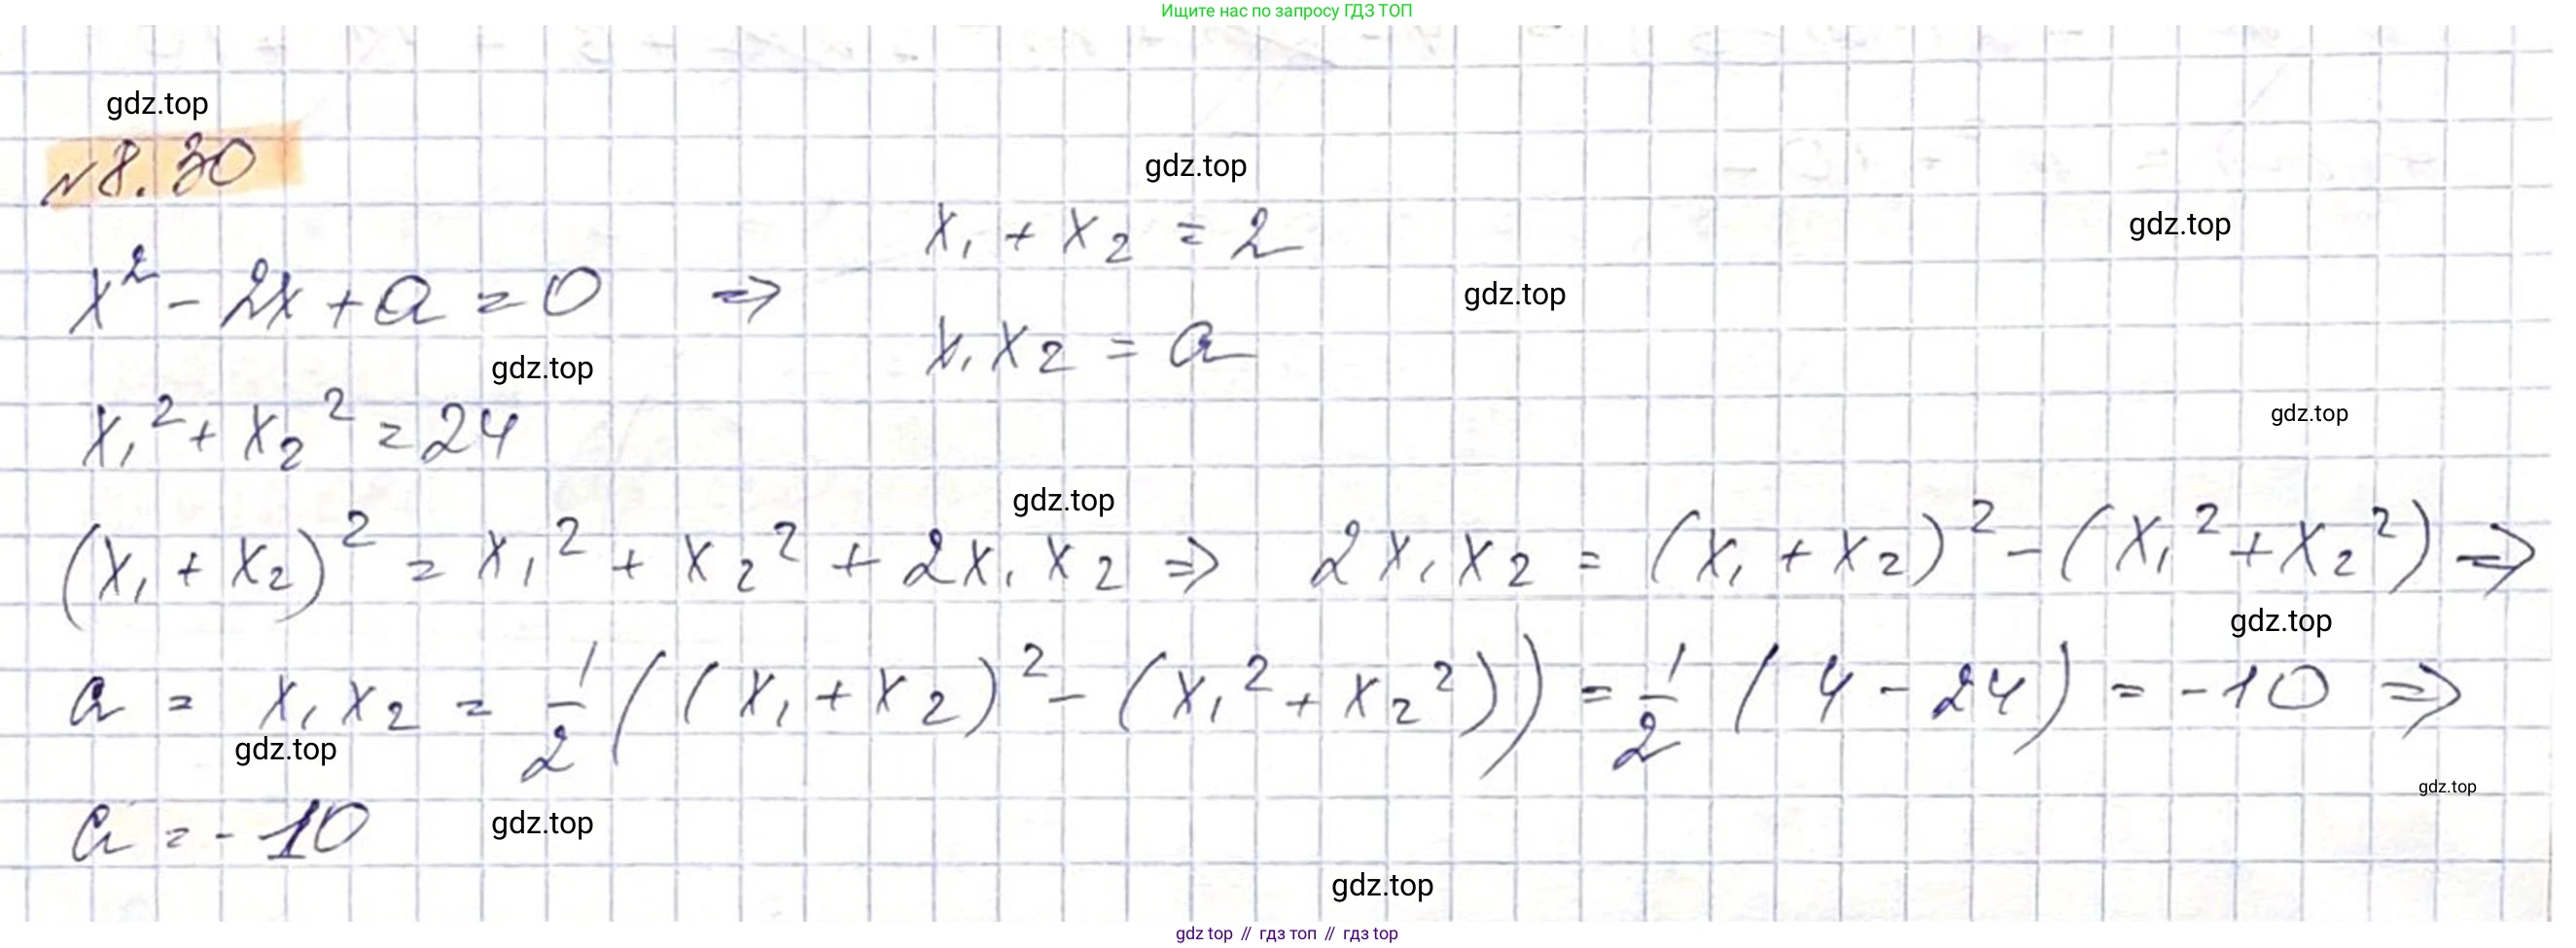 Ищите нас по запросу ГДЗ ТОП
gdz.top
№8.30
gdz.top
x₁ + x₂ = 2
gdz.top
x² - 2x + a = 0 ⇒
gdz.top
x₁x₂ = a
gdz.top
x₁² + x₂² = 24
gdz.top
gdz.top
(x₁ + x₂)² = x₁² + x₂² + 2x₁x₂ ⇒ 2x₁x₂ = (x₁ + x₂)² - (x₁² + x₂²) ⇒
gdz.top
a = x₁x₂ = 1/2 ((x₁ + x₂)² - (x₁² + x₂²)) = 1/2 (4 - 24) = -10 ⇒
gdz.top
gdz.top
a = -10
gdz.top
gdz.top
gdz top // гдз топ // гдз top